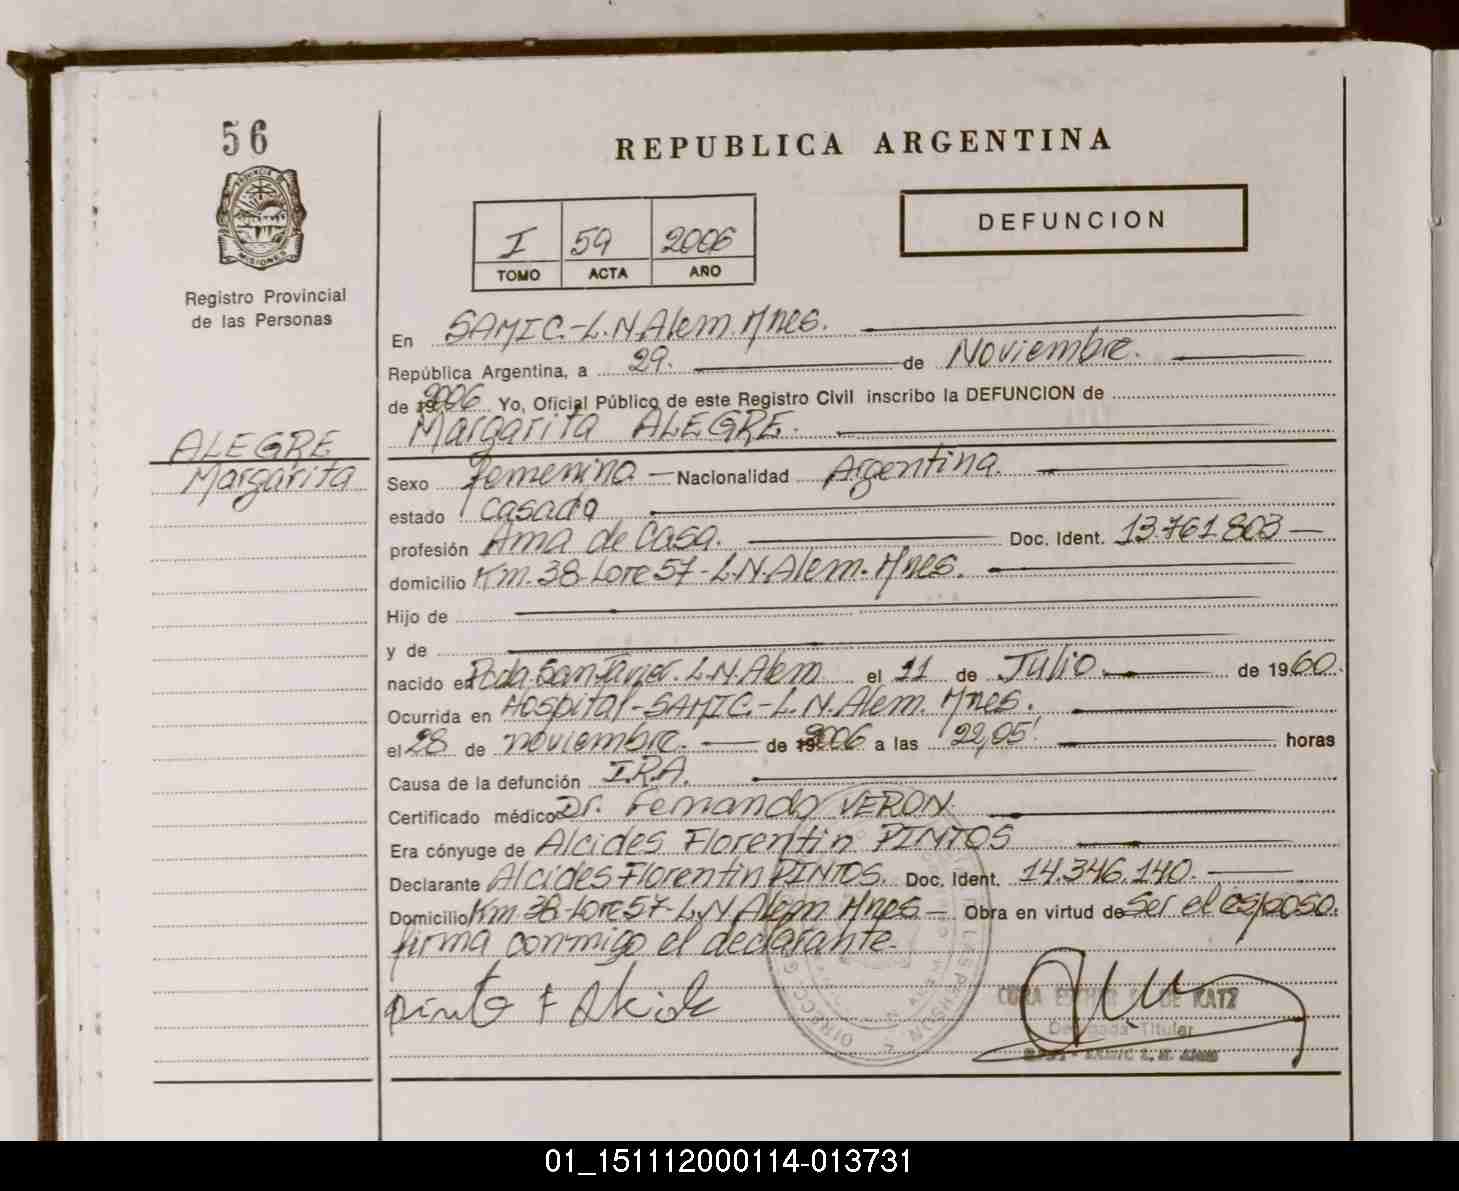 56
REPUBLICA ARGENTINA
PROVINCIA DE MISIONES
Registro Provincial
de las Personas
I 59 2006
TOMO ACTA AÑO
DEFUNCION
ALEGRE
Margarita
En SAMIC-L.N.Alem.Mnes.
República Argentina, a 29. de Noviembre.
de 2006 Yo, Oficial Público de este Registro Civil inscribo la DEFUNCION de
Margarita ALEGRE.
Sexo femenino Nacionalidad Argentina.
estado casada
profesión Ama de Casa. Doc. Ident. 13.761.803
domicilio Km.38-Lote 57-L.N.Alem.Mnes.
Hijo de
y de
nacido en Pcda. San Javier. L.N.Alem el 11 de Julio de 1960.
Ocurrida en Hospital-SAMIC.-L.N.Alem. Mnes.
el 28 de noviembre. de 2006 a las 22,05' horas
Causa de la defunción I.R.A.
Certificado médico Dr. Fernando VERON.
Era cónyuge de Alcides Florentin PINTOS
Declarante Alcides Florentin PINTOS. Doc. Ident. 14.346.140.
Domicilio Km 38-Lote 57-L.N Alem Mnes - Obra en virtud de Ser el esposo.
firma conmigo el declarante.
DE KATZ
Delegada Titular
SAMIC L. N. ALEM
01_151112000114-013731